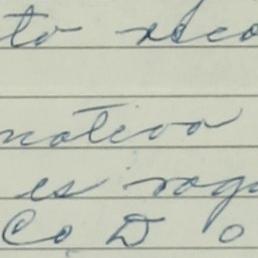 to reco
motivo
es roga
Co D o